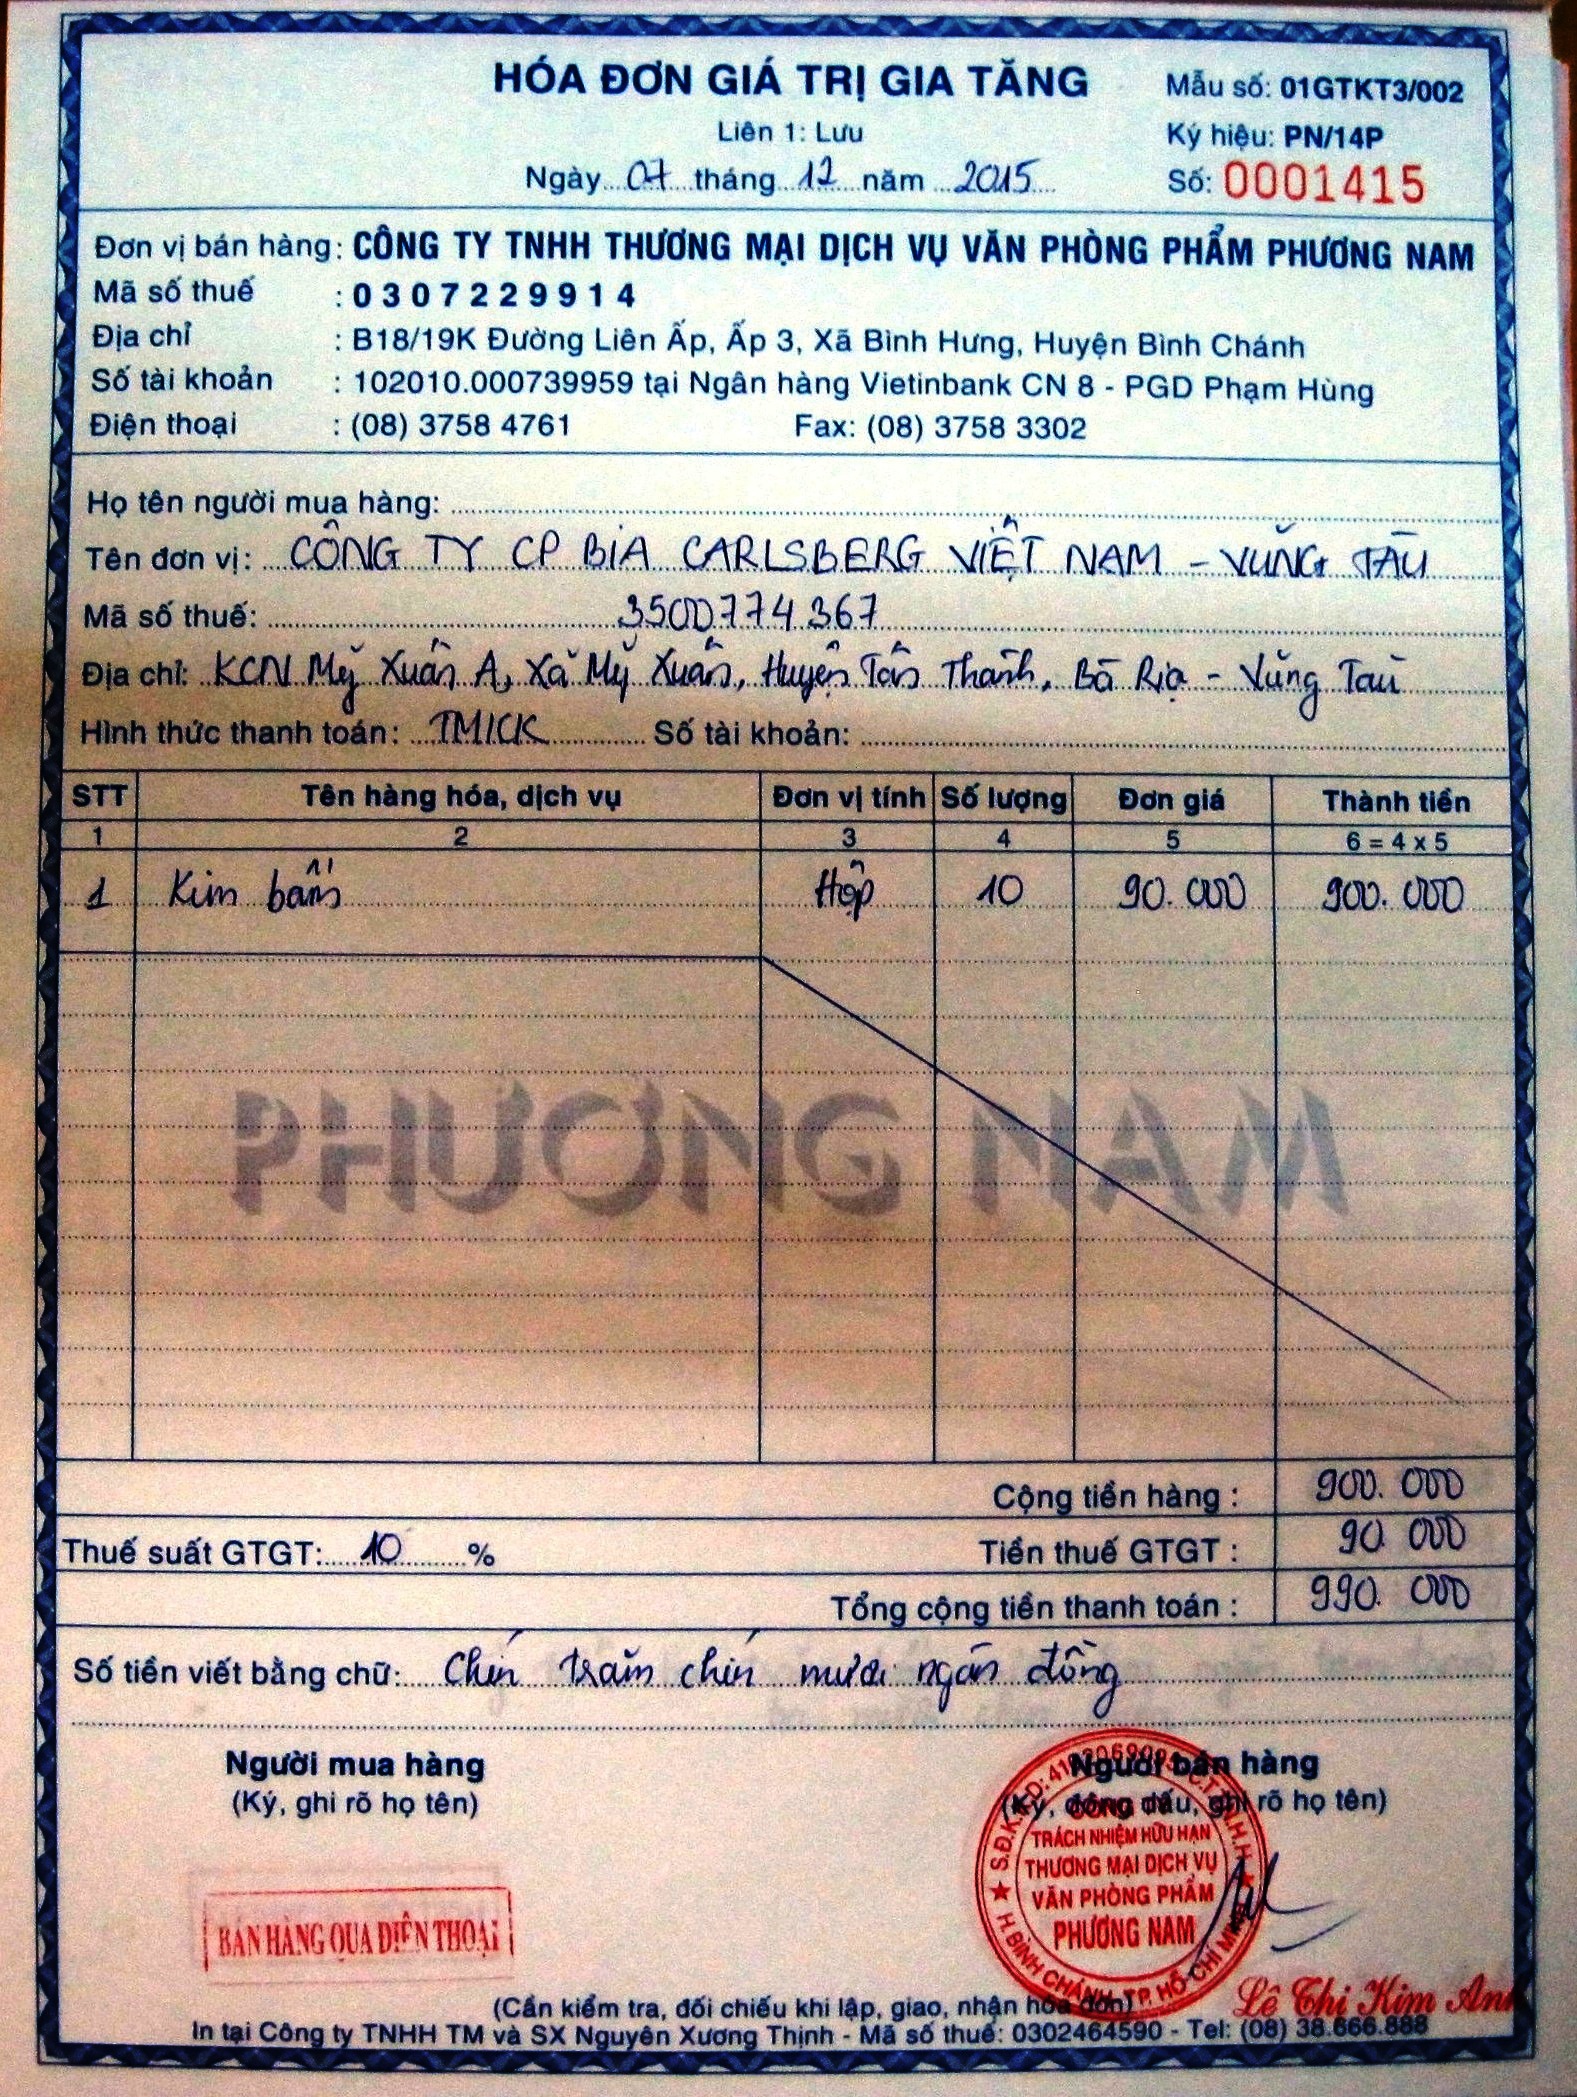 HÓA ĐƠN GIÁ TRỊ GIA TĂNG
Mẫu số: 01GTKT3/002
Liên 1: Lưu
Ký hiệu: PN/14P
Ngày 07 tháng 12 năm 2015
Số: 0001415
Đơn vị bán hàng: CÔNG TY TNHH THƯƠNG MẠI DỊCH VỤ VĂN PHÒNG PHẨM PHƯƠNG NAM
Mã số thuế : 0307229914
Địa chỉ : B18/19K Đường Liên Ấp, Ấp 3, Xã Bình Hưng, Huyện Bình Chánh
Số tài khoản : 102010.000739959 tại Ngân hàng Vietinbank CN 8 - PGD Phạm Hùng
Điện thoại : (08) 3758 4761 Fax: (08) 3758 3302
Họ tên người mua hàng:
Tên đơn vị: CÔNG TY CP BIA CARLSBERG VIỆT NAM - VŨNG TÀU
Mã số thuế: 3500774367
Địa chỉ: KCN Mỹ Xuân A, Xã Mỹ Xuân, Huyện Tân Thành, Bà Rịa - Vũng Tàu
Hình thức thanh toán: TM/CK Số tài khoản:
STT Tên hàng hóa, dịch vụ Đơn vị tính Số lượng Đơn giá Thành tiền
1 2 3 4 5 6 = 4 x 5
1 Kim bấm Hộp 10 90.000 900.000
PHƯƠNG NAM
Cộng tiền hàng : 900.000
Thuế suất GTGT: 10 % Tiền thuế GTGT : 90 000
Tổng cộng tiền thanh toán : 990.000
Số tiền viết bằng chữ: Chín trăm chín mươi ngàn đồng
Người mua hàng Người bán hàng
(Ký, ghi rõ họ tên) (Ký, đóng dấu, ghi rõ họ tên)
CÔNG TY
TRÁCH NHIỆM HỮU HẠN
THƯƠNG MẠI DỊCH VỤ
VĂN PHÒNG PHẨM
PHƯƠNG NAM
H. BÌNH CHÁNH - TP. HỒ CHÍ MINH
BÁN HÀNG QUA ĐIỆN THOẠI
Lê Thị Kim Anh
(Cần kiểm tra, đối chiếu khi lập, giao, nhận hóa đơn)
In tại Công ty TNHH TM và SX Nguyên Xương Thịnh - Mã số thuế: 0302464590 - Tel: (08) 38.666.888